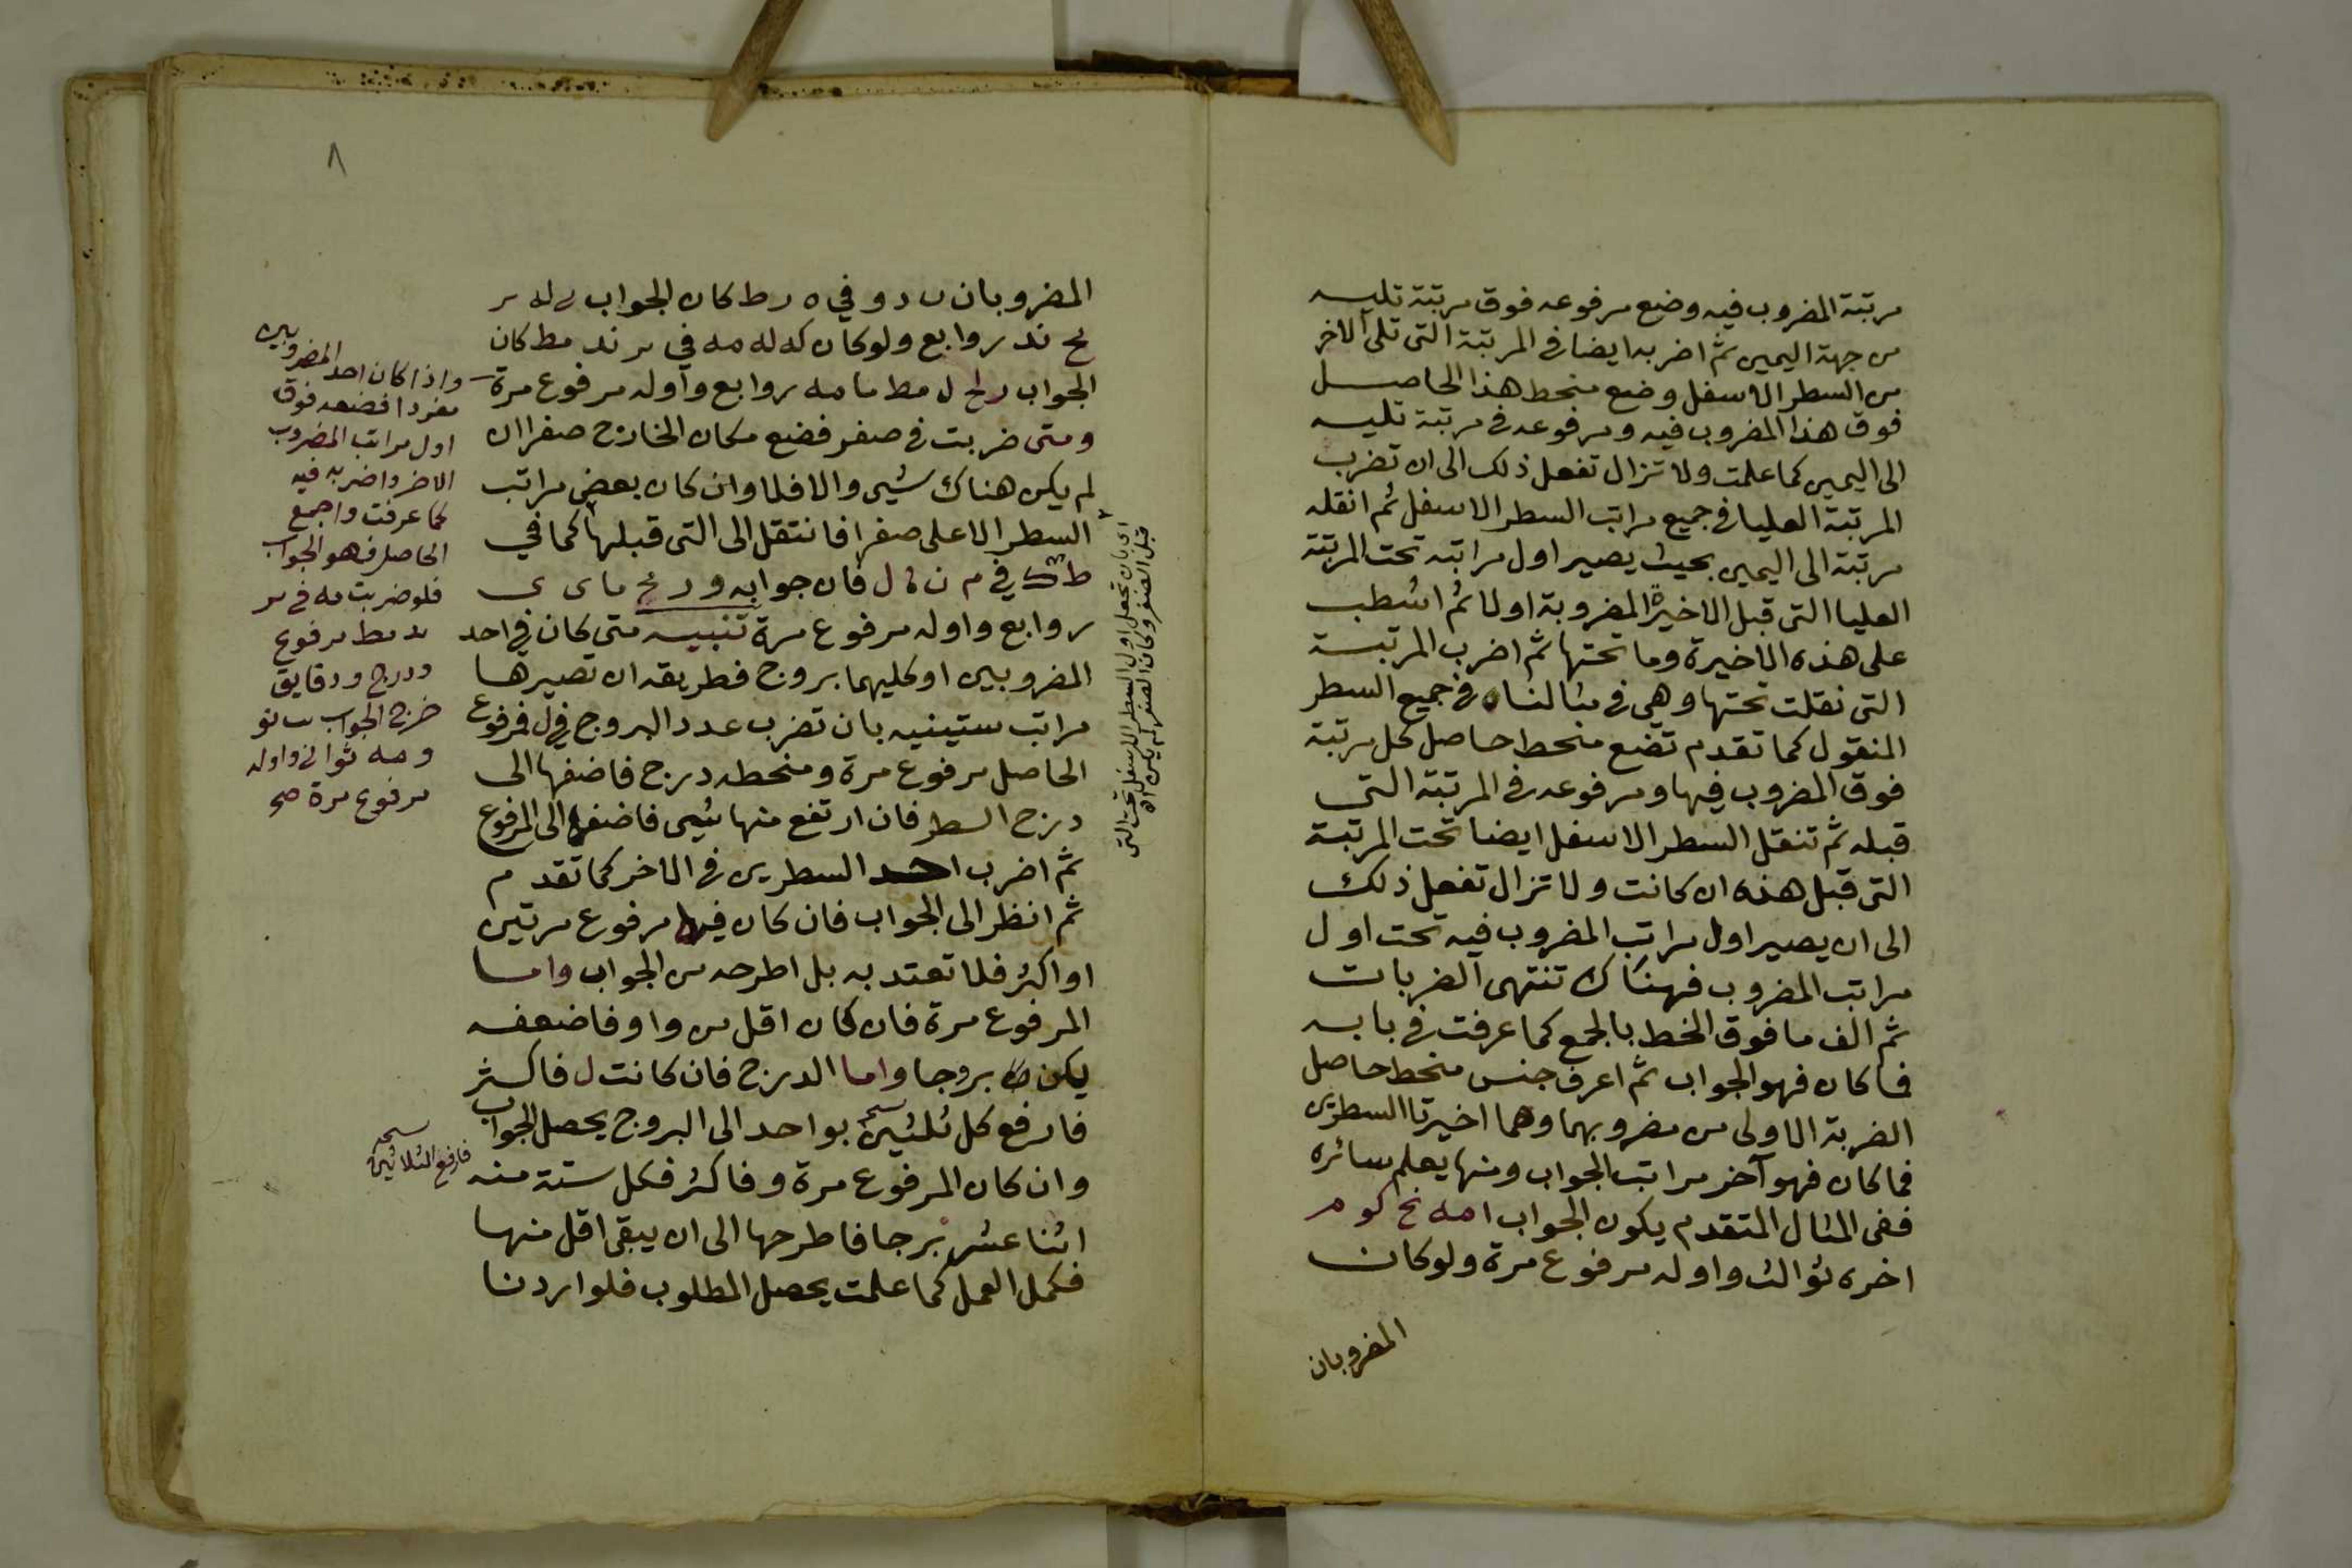 مرتبة المضروب فيه وضع مرفوعه فوق مرتبة تليه
من جهة اليمين ثم اضربه ايضا في المرتبة التي تلى الاخر
من السطر الاسفل وضع منحط هذا الحاصل
فوق هذا المضروب فيه ومرفوعه في مرتبة تليه
الى اليمين كما علمت ولا تزال تفعل ذلك الى ان تضرب
المرتبة العليا في جميع مراتب السطر الاسفل ثم انقله
مرتبة الى اليمين بحيث يصير اول مراتبه تحت المرتبة
العليا التى قبل الاخيرة المضروبة اولا ثم اشطب
على هذه الاخيرة وما تحتها ثم اضرب المرتبة
التى نقلت تحتها وهى في مثالنا ه في جميع السطر
المنقول كما تقدم تضع منحط حاصل كل مرتبة
فوق المضروب فيها ومرفوعه في المرتبة التى
قبله ثم تنقل السطر الاسفل ايضا تحت المرتبة
التى قبل هذه ان كانت ولا تزال تفعل ذلك
الى ان يصير اول مراتب المضروب فيه تحت اول
مراتب المضروب فهناك تنتهى الضربات
ثم الف ما فوق الخط بالجمع كما عرفت في بابه
فما كان فهو الجواب ثم اعرف جنس منحط حاصل
الضربة الاولى من مضروبهما وهما اخيرتا السطرين
فما كان فهو آخر مراتب الجواب ومنها يعلم سائره
ففى المثال المتقدم يكون الجواب ا مه نح كو م
اخره ثوالث واوله مرفوع مرة ولو كان
المضروبان
٨
المضروبان د و في ه ر ط كان الجواب له
يح ند روابع ولو كان كه له مه في ند مط كان
الجواب ل مط ما مه روابع وأوله مرفوع مرة
ومتى ضربت في صفر فضع مكان الخارج صفرا ان
لم يكن هناك شيى والا فلا وان كان بعض مراتب
السطر الاعلى صفرا فانتقل الى التى قبلها كما في
ط في م ن ل فان جوابه و ما ى ى
روابع واوله مرفوع مرة تنبيه متى كان في احد
المضروبين او كليهما بروج فطريقه ان تصيرها
مراتب ستينيه بان تضرب عدد البروج في ل فمرفوع
الحاصل مرفوع مرة ومنحطه درج فاضفها الى
درج السطر فان ارتفع منها شيى فاضفه الى المرفوع
ثم اضرب احد السطرين في الاخر كما تقدم
ثم انظر الى الجواب فان كان فيها مرفوع مرتين
او اكثر فلا تعتد به بل اطرحه من الجواب واما
المرفوع مرة فان كان اقل من و او و فاضعفه
يكن بروجا واما الدرج فان كانت ل فاكثر
فارفع كل ثلثين بواحد الى البروج يحصل الجواب
وان كان المرفوع مرة و فاكثر فكل ستة منه
اثنا عشر برجا فاطرحها الى ان يبقى اقل منها
فكمل العمل كما علمت يحصل المطلوب فلو اردنا
واذا كان احد المضروبين
مفردا فضعه فوق
اول مراتب المضروب
الاخر واضربه فيه
كما عرفت واجمع
الحاصل فهو الجواب
فلو ضربت مه في
ند مط مرفوع
ودرج ودقايق
خرج الجواب
ومه ثواني واوله
مرفوع مرة صح
اى بان تجعل اول السطر الاسفل تحت التى
قبل الصفر وكان الصفر لم يكن اه
فارفع الثلاثين